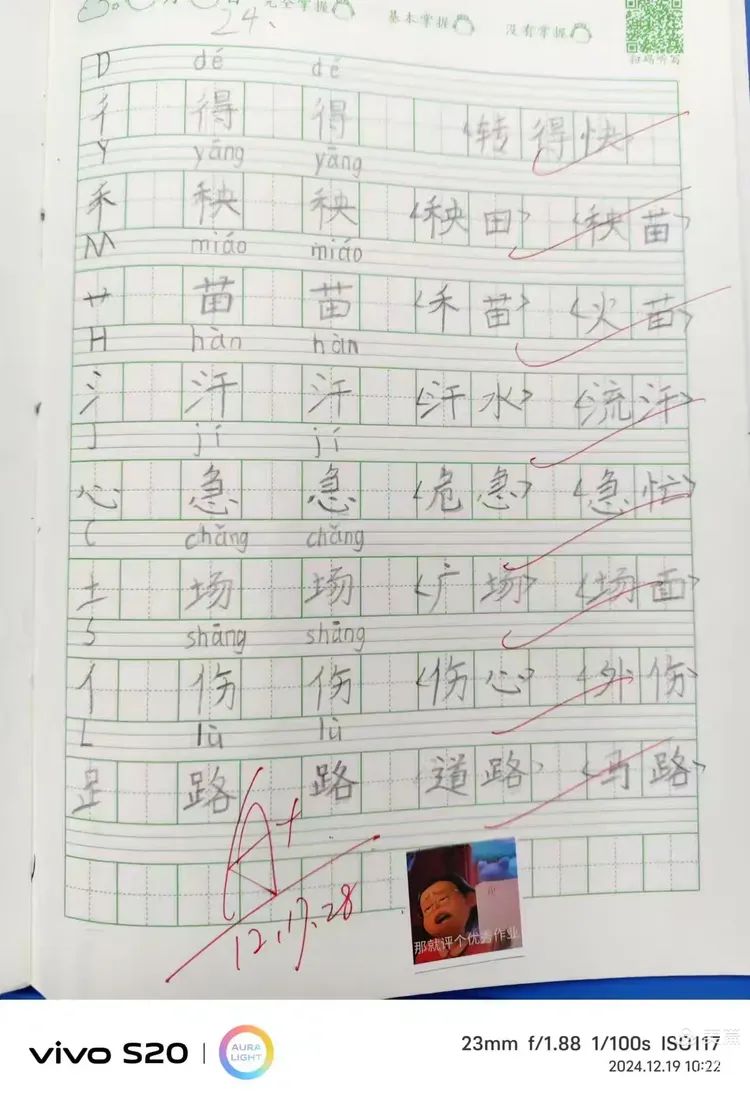 完全掌握 基本掌握 没有掌握
扫码听写
24、
D dé dé
彳 得 得 (转得快)
Y yāng yāng
禾 秧 秧 (秧田) (秧苗)
M miáo miáo
艹 苗 苗 (禾苗) (火苗)
H hàn hàn
氵 汗 汗 (汗水) (流汗)
J jí jí
心 急 急 (危急) (急忙)
C chǎng chǎng
土 场 场 (广场) (场面)
S shāng shāng
亻 伤 伤 (伤心) (外伤)
L lù lù
足 路 路 (道路) (马路)
A+
12.17.28
那就评个优秀作业
vivo S20 | AURA LIGHT
23mm f/1.88 1/100s ISO117
2024.12.19 10:22